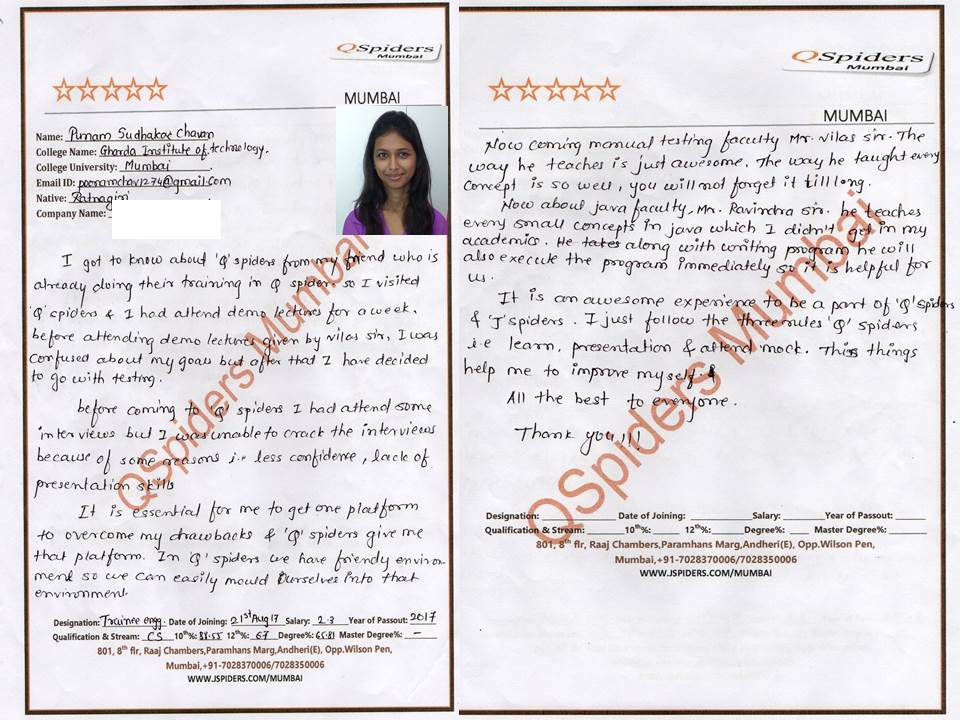 QSpiders
Mumbai
MUMBAI
Name: Punam Sudhakar Chavan
College Name: Gharda Institute of technology.
College University: Mumbai
Email ID: poonamchav1274@gmail.com
Native: Ratnagiri
Company Name:
I got to know about 'Q' spiders from my friend who is
already doing their training in Q spider. so I visited
'Q' spiders & I had attend demo lectures for a week.
before attending demo lectures given by Nilas sir, I was
confused about my goals but after that I have decided
to go with testing.
before coming to 'Q' spiders I had attend some
interviews but I was unable to crack the interviews
because of some reasons i.e less confidence, lack of
presentation skills
It is essential for me to get one platform
to overcome my drawbacks & 'Q' spiders give me
that platform. In 'Q' spiders we have friendly environ-
ment so we can easily mould ourselves into that
environment.
Designation: Trainee engg. Date of Joining: 21st Aug 17 Salary: 2.3 Year of Passout: 2017
Qualification & Stream: CS 10th%: 88.55 12th%: 67 Degree%: 65.81 Master Degree%: -
801, 8th flr, Raaj Chambers,Paramhans Marg,Andheri(E), Opp.Wilson Pen,
Mumbai,+91-7028370006/7028350006
WWW.JSPIDERS.COM/MUMBAI
QSpiders Mumbai
QSpiders
Mumbai
MUMBAI
Now coming manual testing faculty Mr. Nilas sir. The
way he teaches is just awesome. The way he taught every
concept is so well, you will not forget it till long.
Now about java faculty, Mr. Ravindra sir. he teaches
every small concepts in java which I didn't get in my
academics. He tates along with writing program he will
also execute the program immediately so it is helpful for
us.
It is an awesome experience to be a part of 'Q' spiders
& 'J' spiders. I just follow the three rules 'Q' spiders
i.e learn, presentation & attend mock. This things
help me to improve my self.
All the best to everyone.
Thank you!!!
Designation: Date of Joining: Salary: Year of Passout:
Qualification & Stream: 10th%: 12th%: Degree%: Master Degree%:
801, 8th flr, Raaj Chambers,Paramhans Marg,Andheri(E), Opp.Wilson Pen,
Mumbai,+91-7028370006/7028350006
WWW.JSPIDERS.COM/MUMBAI
QSpiders Mumbai